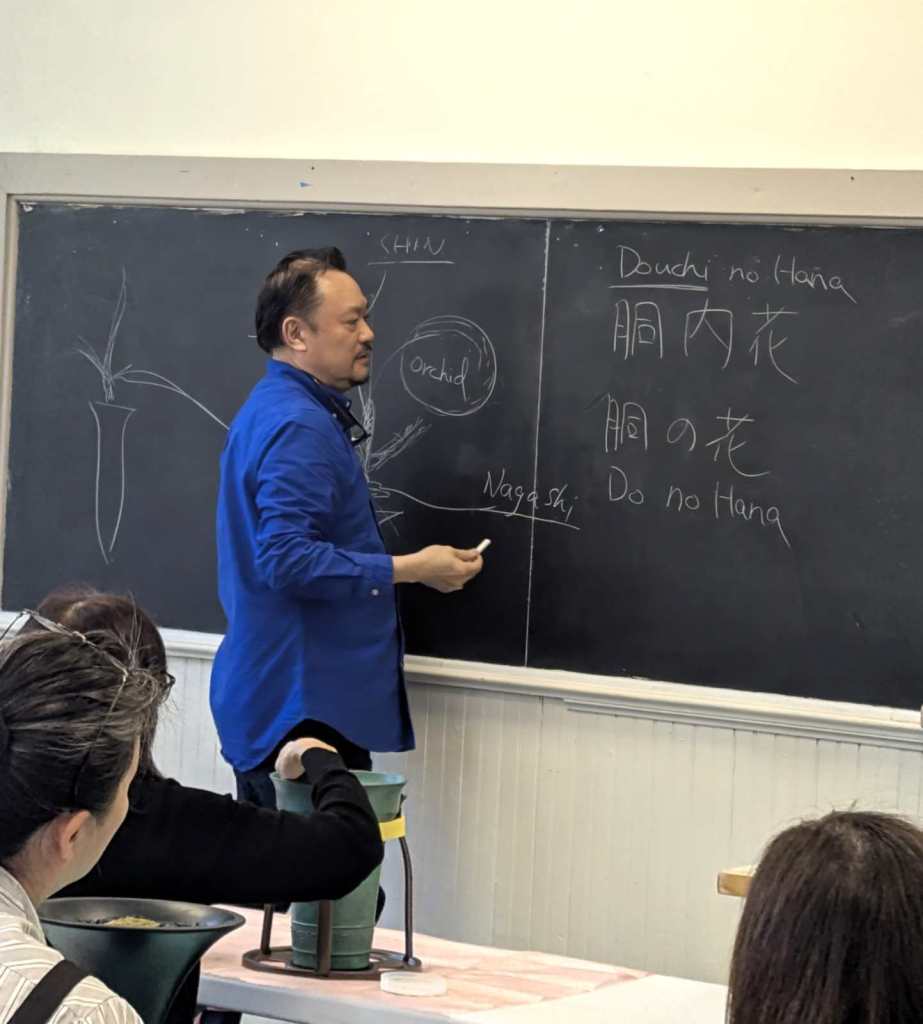 SHIN
Orchid
Nagashi
Douchi no Hana
胴内花
胴の花
Do no Hana